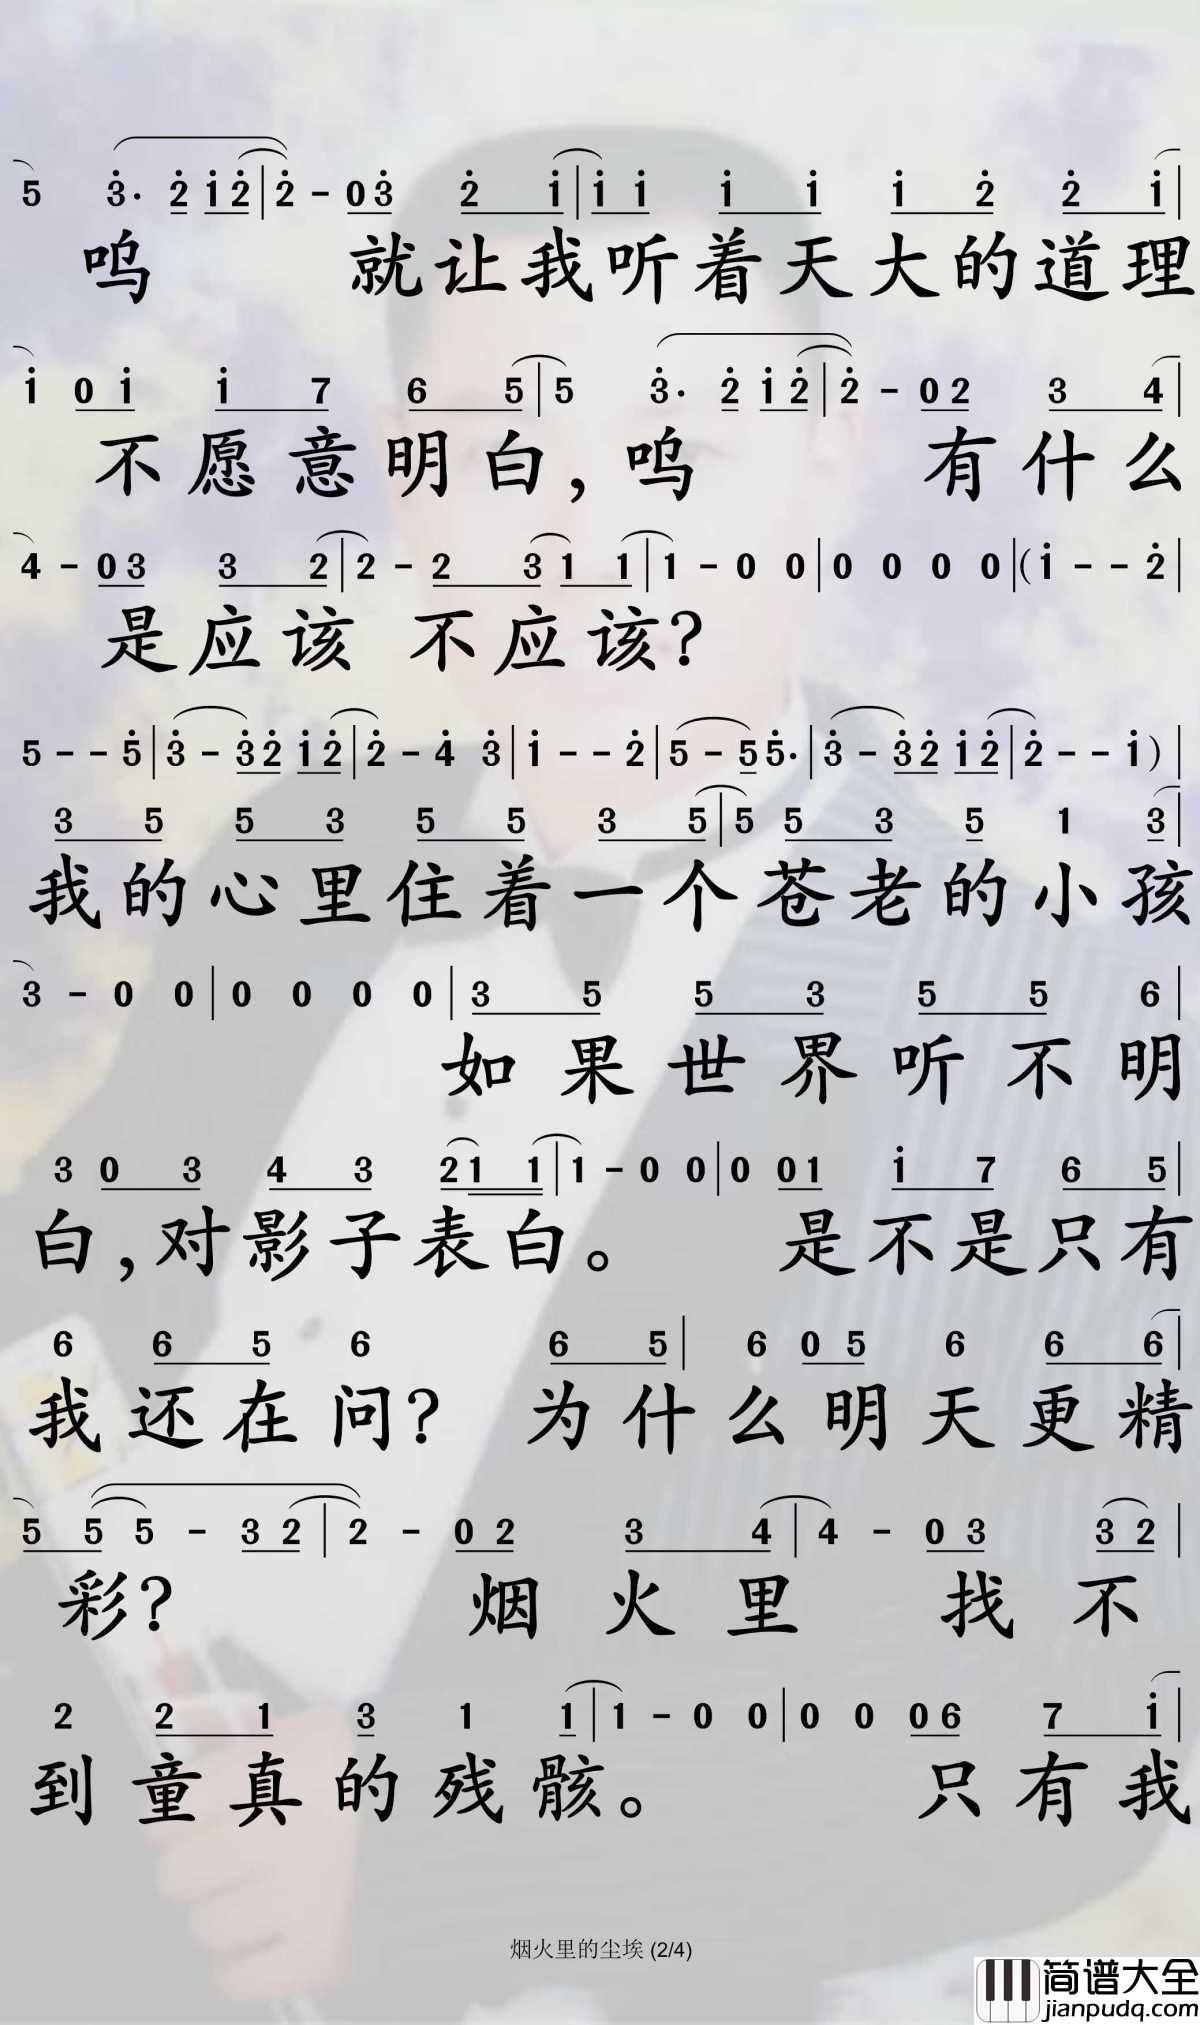 5 3̇. 2̇ 1̇ 2̇ | 2̇ - 0 3̇ 2̇ 1̇ | 1̇ 1̇ 1̇ 1̇ 1̇ 2̇ 2̇ 1̇ |
呜 就让我听着天大的道理
1̇ 0 1̇ 1̇ 7 6 5 | 5 3̇. 2̇ 1̇ 2̇ | 2̇ - 0 2 3 4 |
不愿意明白,呜 有什么
4 - 0 3 3 2 | 2 - 2 3 1 1 | 1 - 0 0 | 0 0 0 0 | (1̇ - - 2̇ |
是应该 不应该?
5 - - 5̇ | 3̇ - 3̇ 2̇ 1̇ 2̇ | 2̇ - 4̇ 3̇ | 1̇ - - 2̇ | 5 - 5 5̇. | 3̇ - 3̇ 2̇ 1̇ 2̇ | 2̇ - - 1̇ )
3 5 5 3 5 5 3 5 | 5 5 3 5 1 3 |
我的心里住着一个苍老的小孩
3 - 0 0 | 0 0 0 0 | 3 5 5 3 5 5 6 |
如果世界听不明
3 0 3 4 3 2 1 1 | 1 - 0 0 | 0 0 1 1̇ 7 6 5 |
白,对影子表白。 是不是只有
6 6 5 6 6 5 | 6 0 5 6 6 6 |
我还在问? 为什么明天更精
5 5 5 - 3 2 | 2 - 0 2 3 4 | 4 - 0 3 3 2 |
彩? 烟火里 找不
2 2 1 3 1 1 | 1 - 0 0 | 0 0 0 6 7 1̇ |
到童真的残骸。 只有我
烟火里的尘埃 (2/4)
简谱大全
jianpudq.com